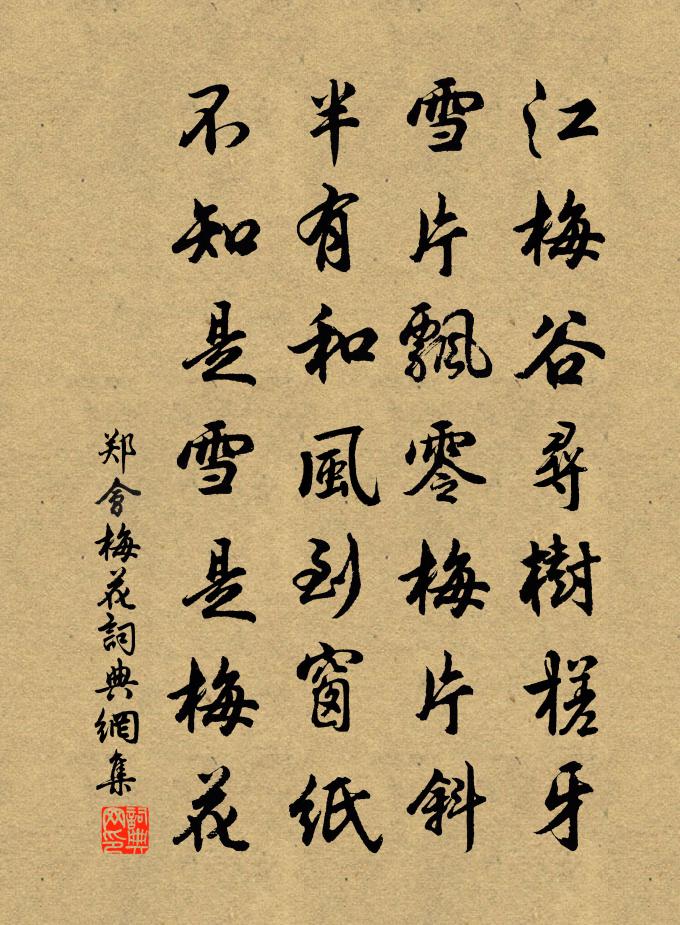 江梅谷尋樹槎牙
雪片飄零梅片斜
半有和風到窗紙
不知是雪是梅花
郑會梅花詞典網集
詞典网印